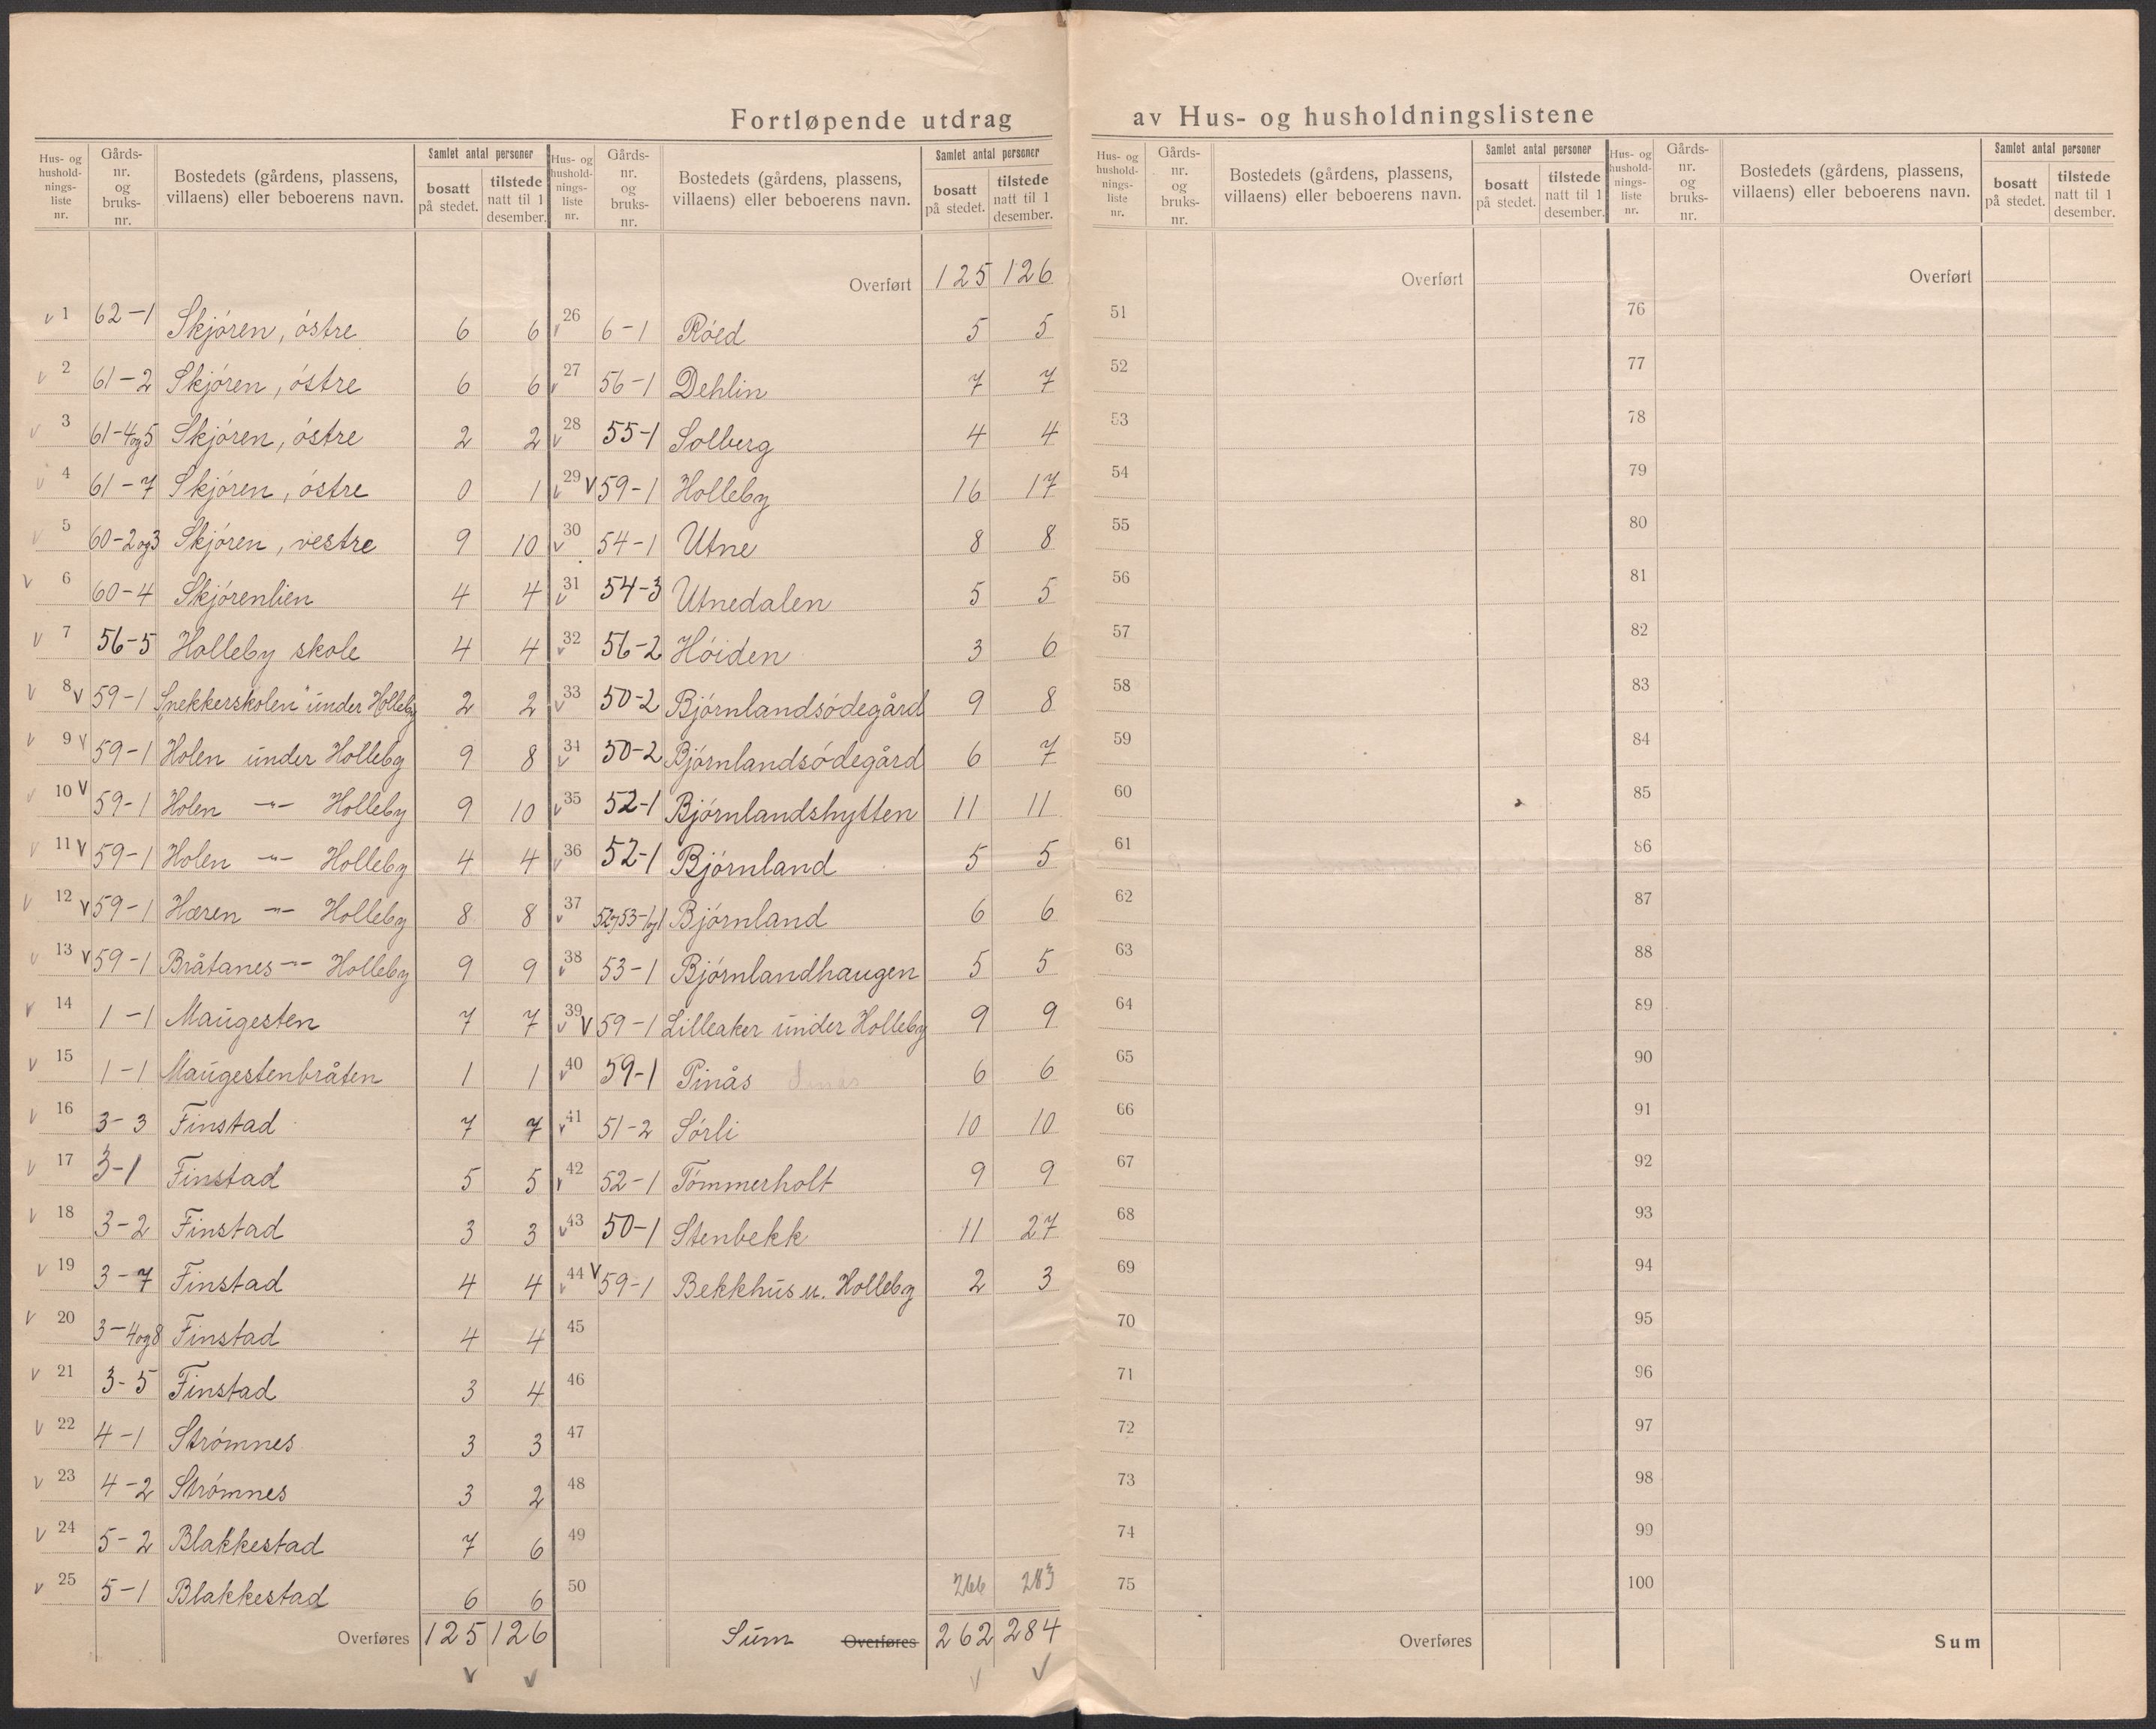 Fortløpende utdrag av Hus- og husholdningslistene
Hus- og husholdnings-liste nr. | Gårds-nr. og bruks-nr. | Bostedets (gårdens, plassens, villaens) eller beboerens navn. | Samlet antal personer | bosatt på stedet. | tilstede natt til 1 desember.
1 62-1 Skjören, östre 6 6
2 61-2 Skjören, östre 6 6
3 61-4og5 Skjören, östre 2 2
4 61-7 Skjören, östre 0 1
5 60-2og3 Skjören, vestre 9 10
6 60-4 Skjörenlien 4 4
7 56-5 Holleby skole 4 4
8 v 59-1 Snekkerskolen" under Holleby 2 2
9 v 59-1 Holen under Holleby 9 8
10 v 59-1 Holen -"- Holleby 9 10
11 v 59-1 Holen -"- Holleby 4 4
12 v 59-1 Hæren -"- Holleby 8 8
13 v 59-1 Bråtanes -"- Holleby 9 9
14 1-1 Maugesten 7 7
15 1-1 Maugestenbråten 1 1
16 3-3 Finstad 7 7
17 3-1 Finstad 5 5
18 3-2 Finstad 3 3
19 3-7 Finstad 4 4
20 3-4og8 Finstad 4 4
21 3-5 Finstad 3 4
22 4-1 Strömnes 3 3
23 4-2 Strömnes 3 2
24 5-2 Blakkestad 7 6
25 5-1 Blakkestad 6 6
Overføres 125 126
Hus- og husholdnings-liste nr. | Gårds-nr. og bruks-nr. | Bostedets (gårdens, plassens, villaens) eller beboerens navn. | Samlet antal personer | bosatt på stedet. | tilstede natt til 1 desember.
Overført 125 126
26 6-1 Röed 5 5
27 56-1 Dehlin 7 7
28 55-1 Solberg 4 4
29 v 59-1 Holleby 16 17
30 54-1 Utne 8 8
31 54-3 Utnedalen 5 5
32 56-2 Höiden 3 6
33 50-2 Björnlandsödegård 9 8
34 50-2 Björnlandsödegård 6 7
35 52-1 Björnlandshytten 11 11
36 52-1 Björnland 5 5
37 52og53-1og1 Björnland 6 6
38 53-1 Björnlandhaugen 5 5
39 v 59-1 Lilleaker under Holleby 9 9
40 59-1 Pinås 6 6
41 51-2 Sörli 10 10
42 52-1 Tömmerholt 9 9
43 50-1 Stenbekk 11 27
44 v 59-1 Bekkhus u. Holleby 2 3
45
46
47
48
49
50 266 283
Sum Overføres 262 284
Hus- og husholdnings-liste nr. | Gårds-nr. og bruks-nr. | Bostedets (gårdens, plassens, villaens) eller beboerens navn. | Samlet antal personer | bosatt på stedet. | tilstede natt til 1 desember.
Overført
51
52
53
54
55
56
57
58
59
60
61
62
63
64
65
66
67
68
69
70
71
72
73
74
75
Overføres
Hus- og husholdnings-liste nr. | Gårds-nr. og bruks-nr. | Bostedets (gårdens, plassens, villaens) eller beboerens navn. | Samlet antal personer | bosatt på stedet. | tilstede natt til 1 desember.
Overført
76
77
78
79
80
81
82
83
84
85
86
87
88
89
90
91
92
93
94
95
96
97
98
99
100
Sum